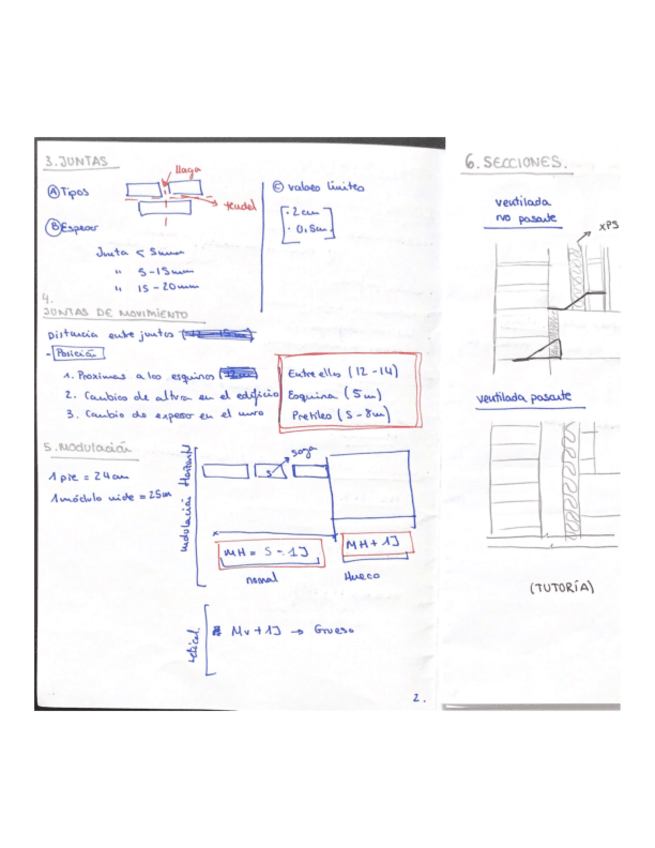 3. JUNTAS
llaga
tendel
Ⓐ Tipos
Ⓑ Espesor
Junta < 5mm
" 5-15mm
" 15-20mm
Ⓒ valores límites
· 2cm
· 0,5cm
4.
JUNTAS DE MOVIMIENTO
Distancia entre juntas
- Posición
1. Proximas a las esquinas
2. Cambios de altura en el edificio
3. Cambio de espesor en el muro
Entre ellas (12-14)
Esquina (5m)
Pretiles (5-8m)
5. Modulación
1 pie = 24cm
1 módulo mide = 25cm
modulación Horizontal
soga
S
MH = S - 1J
MH + 1J
normal
Hueco
vertical
Mv + 1J → Grueso
2.
6. SECCIONES.
ventilada
no pasante
XPS
ventilada pasante
(TUTORÍA)